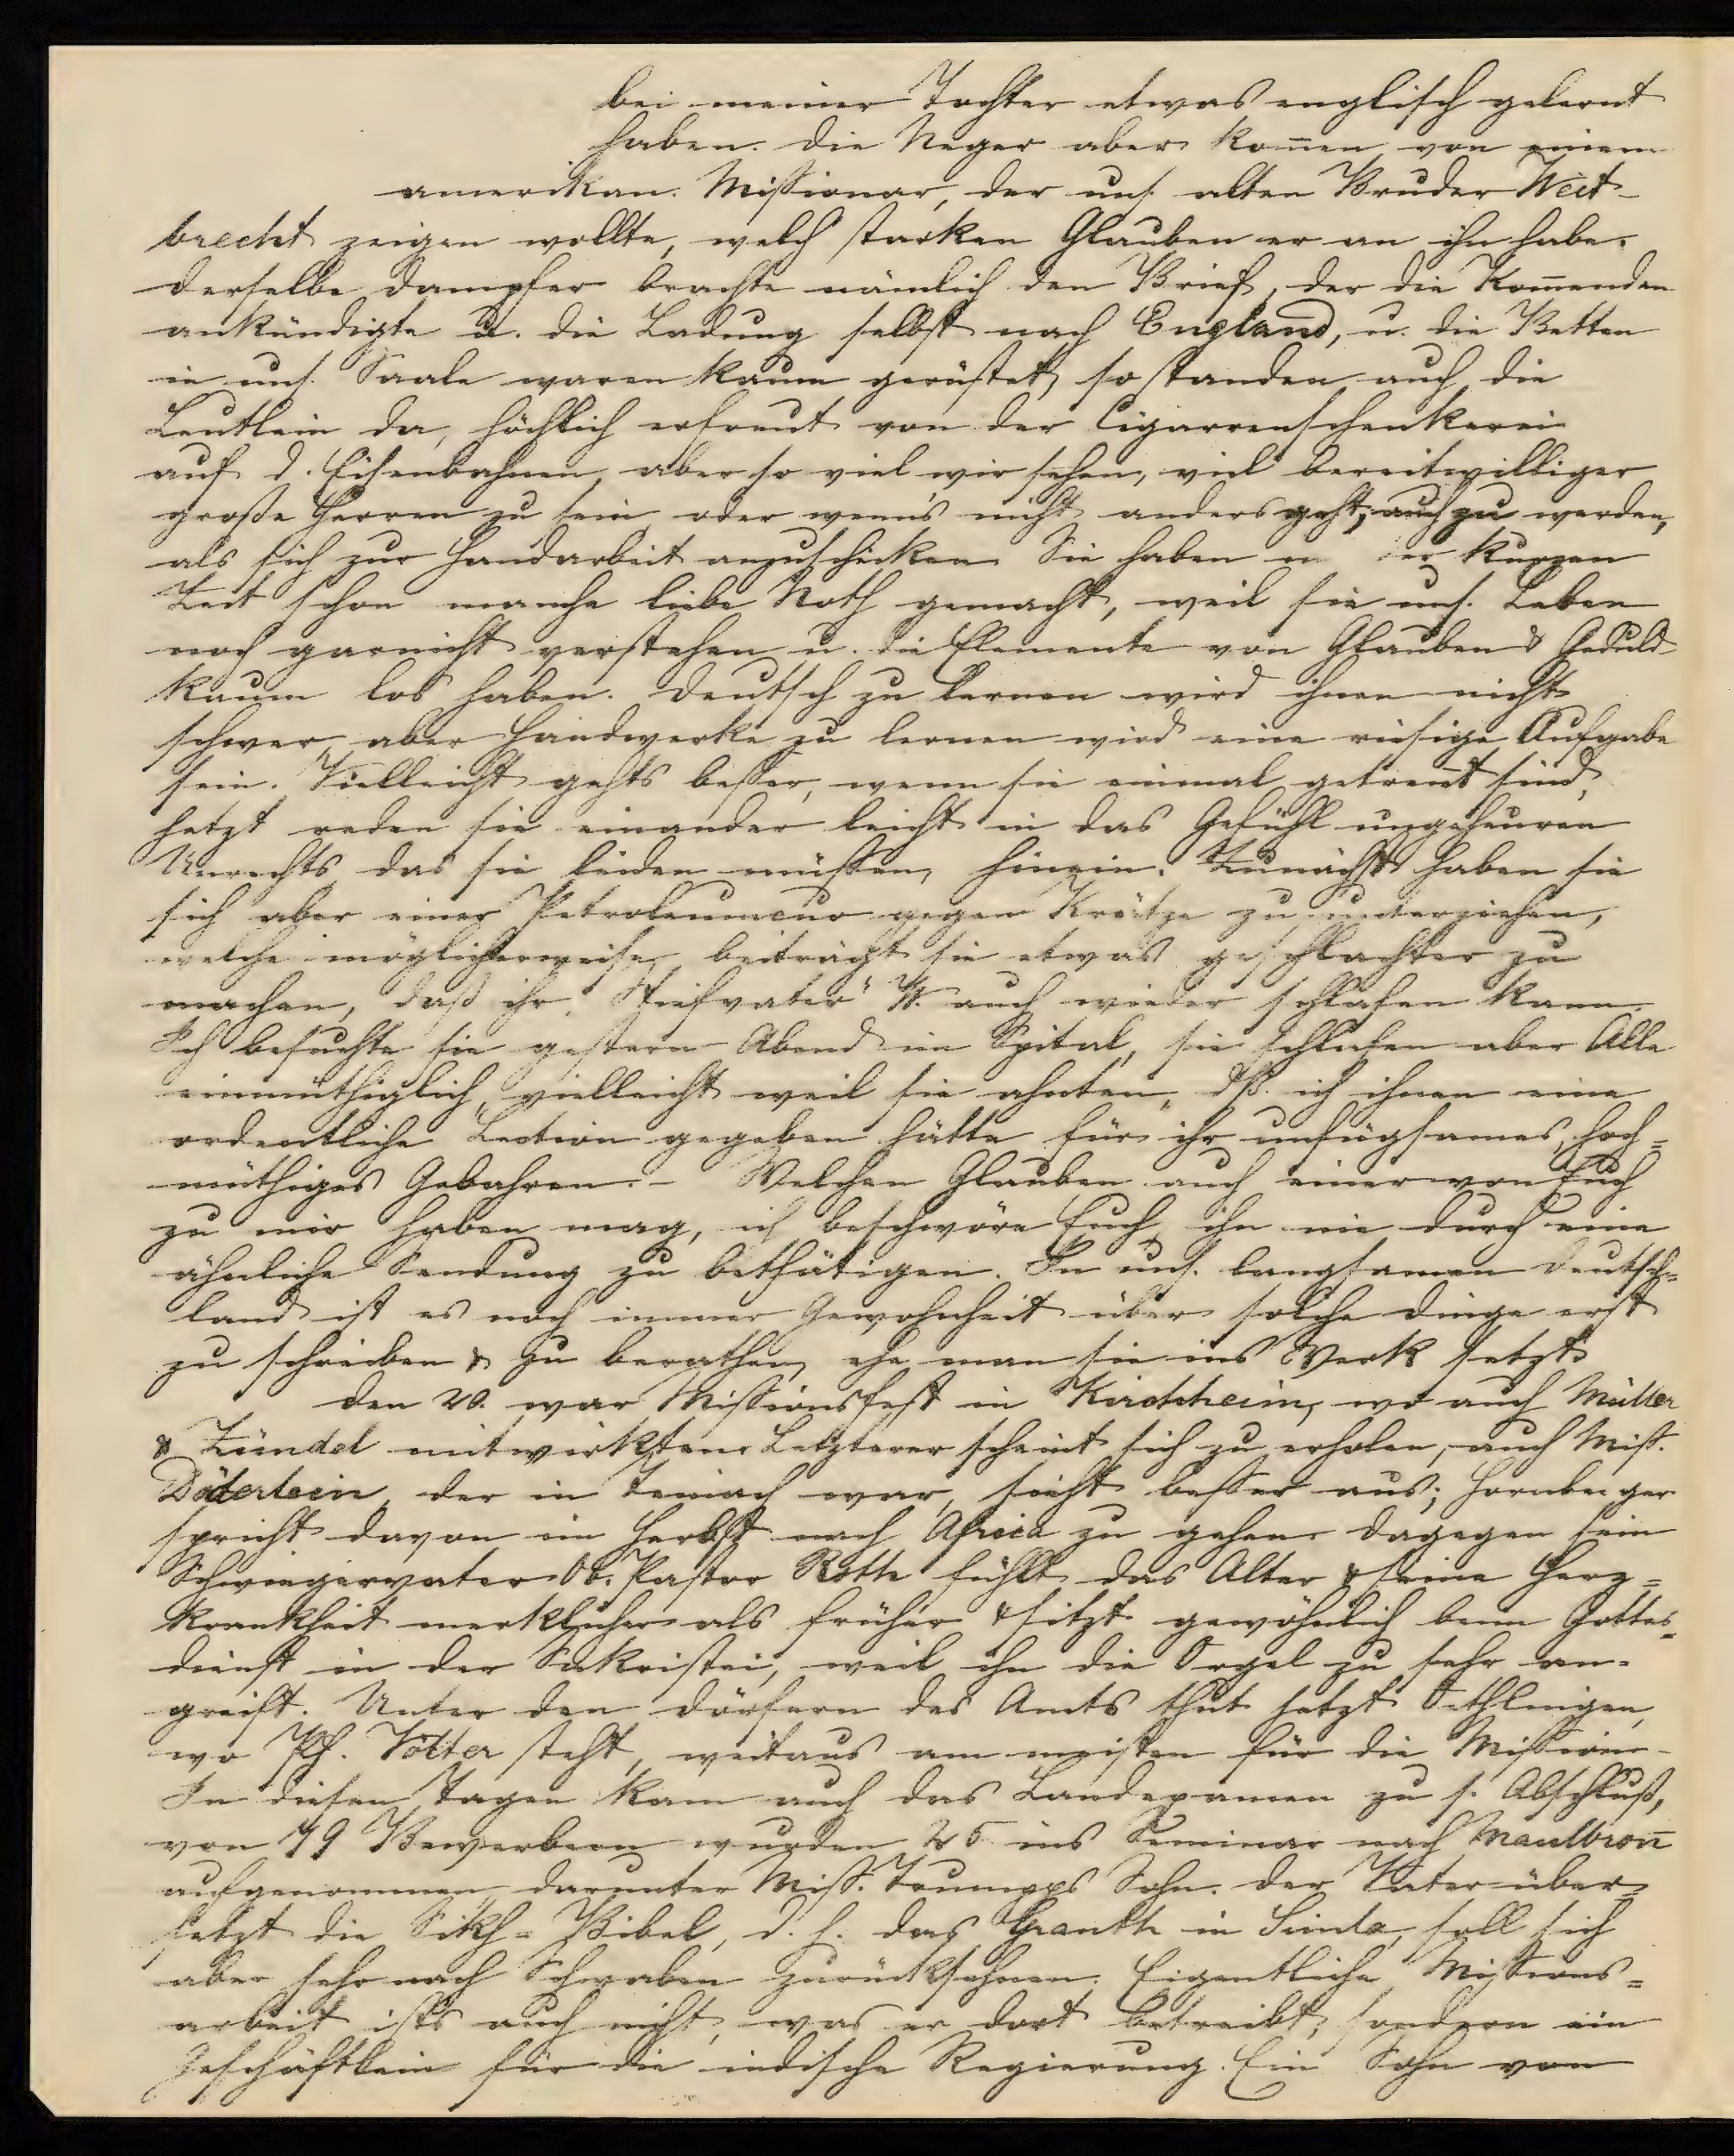 bei meiner Tochter etwas englisch gelernt
haben. Die Neger aber kom̄en von einem
amerikan. Missionar, der uns. alten Bruder Weit-
brecht zeigen wollte, welch starken Glauben er an ihn habe.
Derselbe Dampfer brachte nämlich den Brief, der die Kom̄enden
ankündigte u. die Ladung selbst nach England, u. die Betten
in uns. Saale waren kaum gerüstet, so standen auch die
Leutlein da, höchlich erfreut von der Cigarrenschenkerei
auf d. Eisenbahnen, aber so viel wir sehen, viel bereitwilliger
große Herren zu sein oder wenn's nicht anders geht, auch zu werden,
als sich zur Handarbeit anzuschicken. Sie haben in der kurzen
Zeit schon manche liebe Noth gemacht, weil sie uns. Leben
noch garnicht verstehen u. die Elemente von Glauben & Geduld
kaum los haben. Deutsch zu lernen wird ihnen nicht
schwer, aber Handwerke zu lernen wird eine riesige Aufgabe
sein. Vielleicht gehts besser, wenn sie einmal getrennt sind,
jetzt reden sie einander leicht in das Gefühl ungeheuren
Unrechts das sie leiden müssen, hinein. Zunächst haben sie
sich aber einer Petroleumcur gegen Krätze zu unterziehen,
welche möglicherweise beiträgt sie etwas geschlachter zu
machen, daß ihr "Stiefvater" W. auch wieder schlafen kann.
Ich besuchte sie gestern Abend im Spital, sie schlafen aber Alle
einmüthiglich, vielleicht weil sie ahnten, dß. ich ihnen eine
ordentliche Lection gegeben hätte für ihr unfügsames, hoch=
müthiges Gebahren. - Welchen Glauben auch einer von Euch
zu mir haben mag, ich beschwöre Euch, ihn nie durch eine
ähnliche Sendung zu bethätigen. In uns. langsamen Deutsch=
land ist es noch immer Gewohnheit über solche Dinge erst
zu schreiben & zu berathen, ehe man sie ins Werk setzt.
Den 20. war Missionsfest in Kirchheim, wo auch Müller
& Zündel mitwirkten. Letzterer scheint sich zu erholen, auch Miss.
Döderlein, der in Teinach war, sieht besser aus; Hornberger
spricht davon im Herbst nach Africa zu gehen. Dagegen sein
Schwiegervater Ob. Pastor Rothe fühlt das Alter & seine Herz=
krankheit merklicher als früher & sitzt gewöhnlich beim Gottes=
dienst in der Sakristei, weil ihn die Orgel zu sehr an=
greift. Unter den Dörfern des Amts thut jetzt Oethlingen,
wo Pf. Völter steht, weitaus am meisten für die Mission. -
In diesen Tagen kam auch das Landexamen zu s. Abschluß,
von 79 Bewerbern wurden 25 ins Seminar nach Maulbron̄
aufgenommen, darunter Miss. Trumpps Sohn. Der Vater über=
setzt die Sikh=Bibel, d. h. das Granth in Simla, soll sich
aber sehr nach Schwaben zurücksehnen. Eigentliche Missions=
arbeit ists auch nicht, was er dort betreibt, sondern ein
Geschäftlein für die indische Regierung. Ein Sohn von